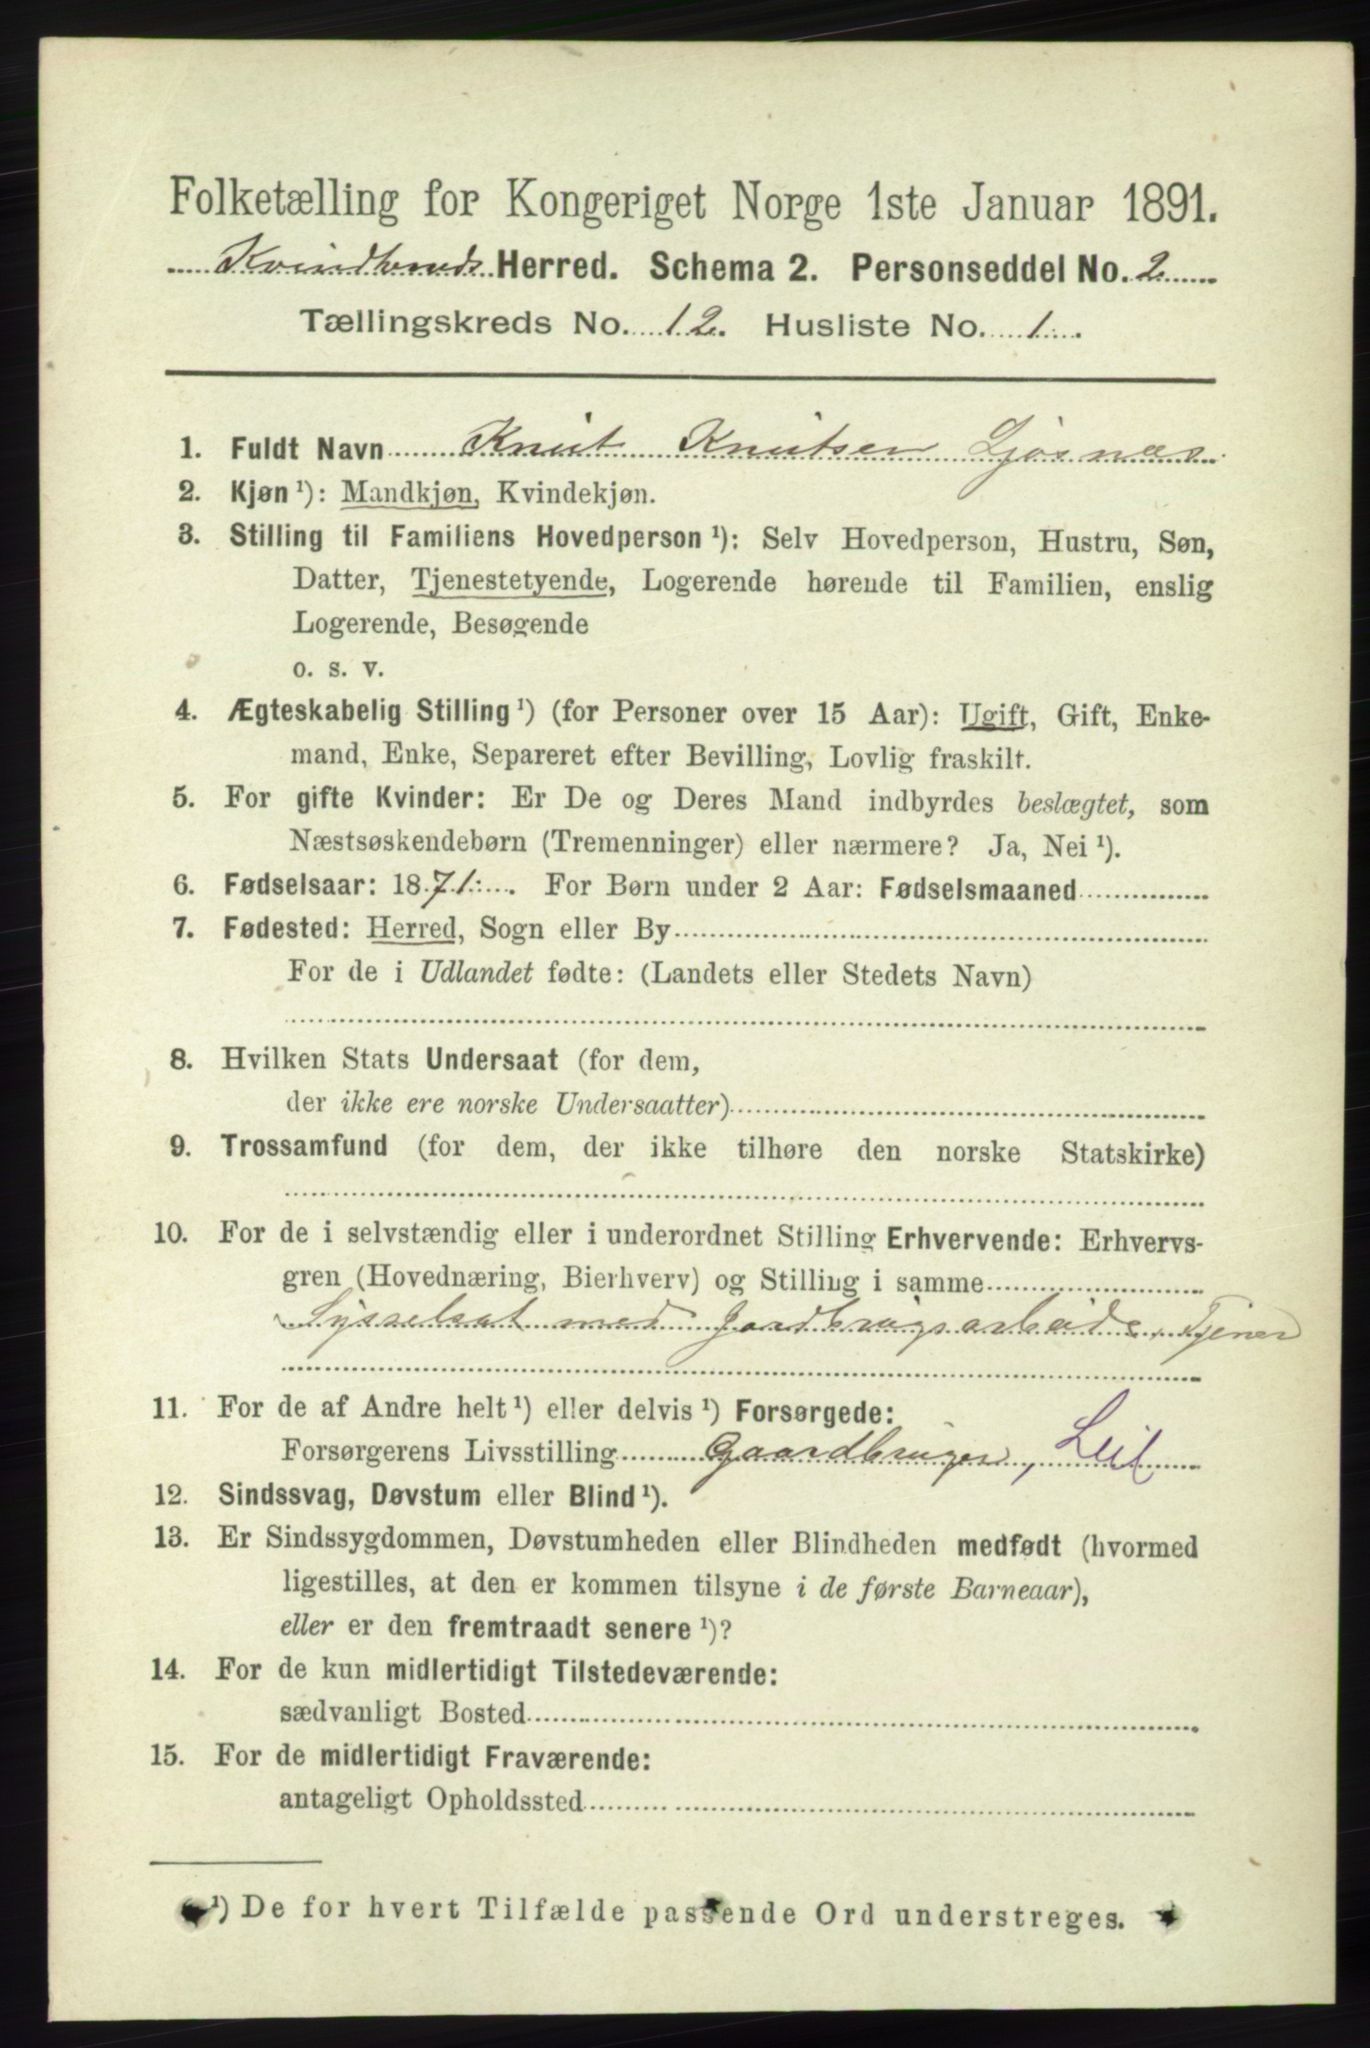 Folketælling for Kongeriget Norge 1ste Januar 1891.
Kvindherreds Herred. Schema 2. Personseddel No. 2
Tællingskreds No. 12. Husliste No. 1
1. Fuldt Navn Knut Knutsen Ljosnæs
2. Kjøn ¹): Mandkjøn, Kvindekjøn.
3. Stilling til Familiens Hovedperson ¹): Selv Hovedperson, Hustru, Søn,
Datter, Tjenestetyende, Logerende hørende til Familien, enslig
Logerende, Besøgende
o. s. v.
4. Ægteskabelig Stilling ¹) (for Personer over 15 Aar): Ugift, Gift, Enke-
mand, Enke, Separeret efter Bevilling, Lovlig fraskilt.
5. For gifte Kvinder: Er De og Deres Mand indbyrdes beslægtet, som
Næstsøskendebørn (Tremenninger) eller nærmere? Ja, Nei ¹).
6. Fødselsaar: 1871. For Børn under 2 Aar: Fødselsmaaned
7. Fødested: Herred, Sogn eller By
For de i Udlandet fødte: (Landets eller Stedets Navn)
8. Hvilken Stats Undersaat (for dem,
der ikke ere norske Undersaatter)
9. Trossamfund (for dem, der ikke tilhøre den norske Statskirke)
10. For de i selvstændig eller i underordnet Stilling Erhvervende: Erhvervs-
gren (Hovednæring, Bierhverv) og Stilling i samme
Sysselsat med Jordbrugsarbeide, Tjener
11. For de af Andre helt ¹) eller delvis ¹) Forsørgede:
Forsørgerens Livsstilling Gaardbruger,
12. Sindssvag, Døvstum eller Blind ¹).
13. Er Sindssygdommen, Døvstumheden eller Blindheden medfødt (hvormed
ligestilles, at den er kommen tilsyne i de første Barneaar),
eller er den fremtraadt senere ¹)?
14. For de kun midlertidigt Tilstedeværende:
sædvanligt Bosted
15. For de midlertidigt Fraværende:
antageligt Opholdssted
¹) De for hvert Tilfælde passende Ord understreges.